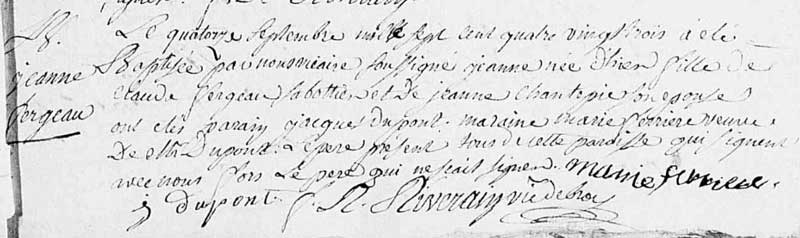 Le quatorze septembre mil sept cent quatre vingt trois a été
B.
jeanne
sergeau
Baptisée par nous vicaire soussigné jeanne née d'hier fille de
claude sergeau sabottier et de jeanne chantepie son epouse
ont étés parain jacques dupont. maraine marie ferriere veuve
De Dupont. Le pere présent tous de cette paroisse qui signent
avec nous fors Le pere qui ne scait signer. marie
j dupont f. R. Riverain vic de